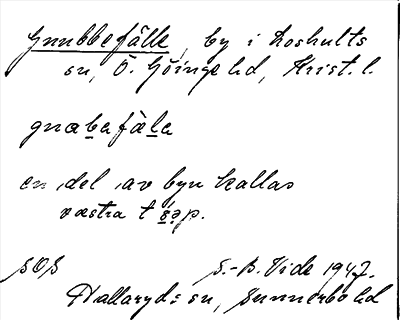 Gnubbefälle, by i Loshults
sn, Ö. Göinge hd, Krist. l.
gnabafäla
en del av byn kallas
västra t
SOS S.-B. Vide 1947.
Hallaryds sn, Sunnerbo hd